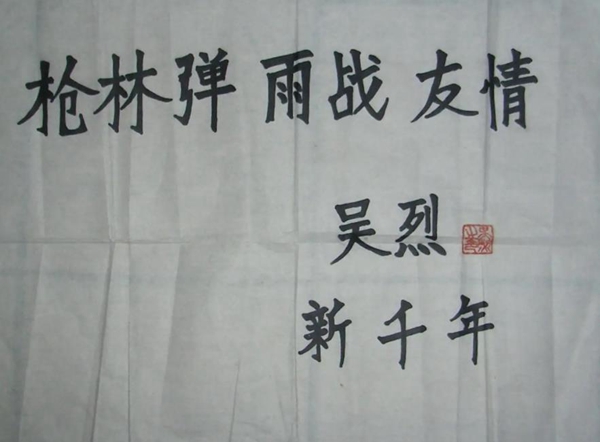 枪林弹雨战友情
吴烈
新千年